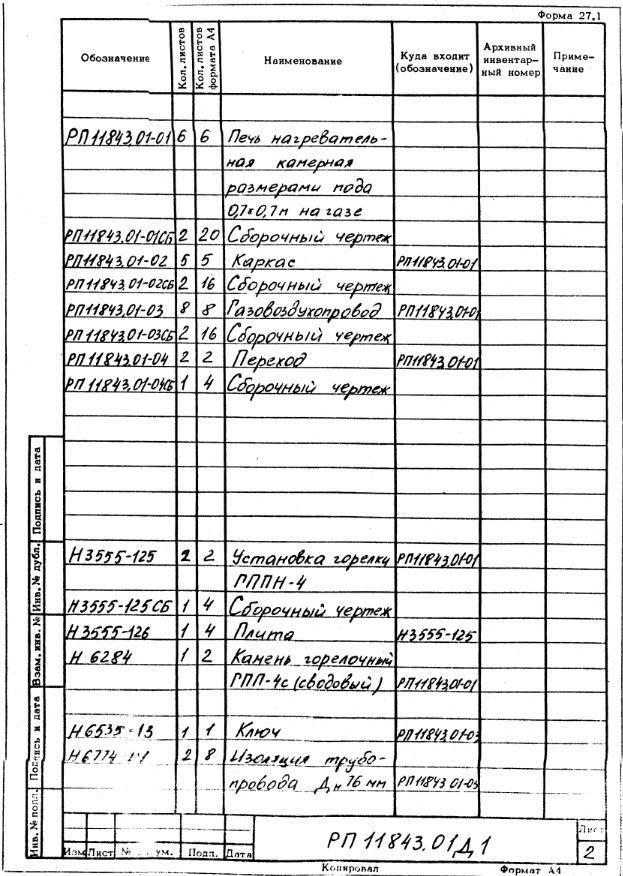 Форма 27.1
Обозначение Кол. листов Кол. листов формата А4 Наименование Куда входит (обозначение) Архивный инвентар- ный номер Приме- чание
РП11843.01-01 6 6 Печь нагреватель-
ная камерная
размерами пода
0,7×0,7м на газе
РП11843.01-01СБ 2 20 Сборочный чертеж
РП11843.01-02 5 5 Каркас РП11843.01-01
РП11843.01-02СБ 2 16 Сборочный чертеж
РП11843.01-03 8 8 Газовоздухопровод РП11843.01-01
РП11843.01-03СБ 2 16 Сборочный чертеж
РП11843.01-04 2 2 Переход РП11843.01-01
РП11843.01-04СБ 1 4 Сборочный чертеж
Н3555-125 2 2 Установка горелки РП11843.01-01
ГППН-4
Н3555-125СБ 1 4 Сборочный чертеж
Н3555-126 1 4 Плита Н3555-125
Н 6284 1 2 Камень горелочный
ГПП-4с (сводовый) РП11843.01-01
Н6535-13 1 1 Ключ РП11843.01-03
Н6774 2 8 Изоляция трубо-
провода Дн 76 мм РП11843.01-03
Инв. № подл. Подпись и дата Взам. инв. № Инв. № дубл. Подпись и дата
РП 11843.01Д1
Лист
2
Изм Лист № ум. Подп. Дата
Копировал Формат А4